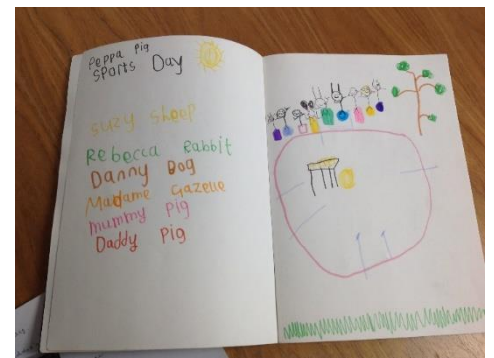 Peppa Pig
Sports Day
Suzy Sheep
Rebecca Rabbit
Danny Dog
Madame Gazelle
Mummy Pig
Daddy Pig